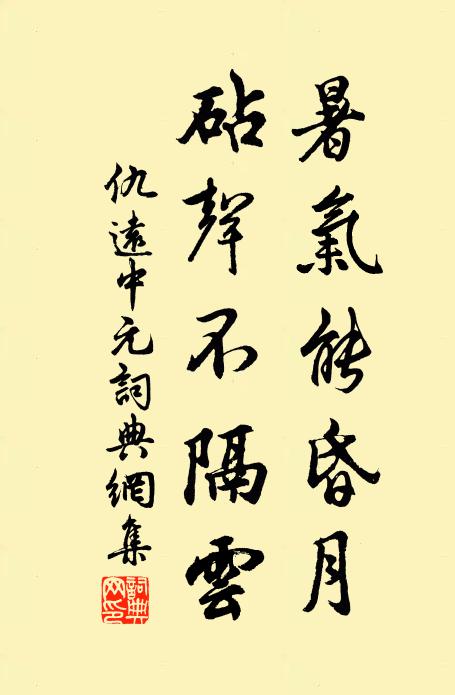 暑氣能昏月
砧聲不隔雲
仇遠中元詞典網集
詞典网印